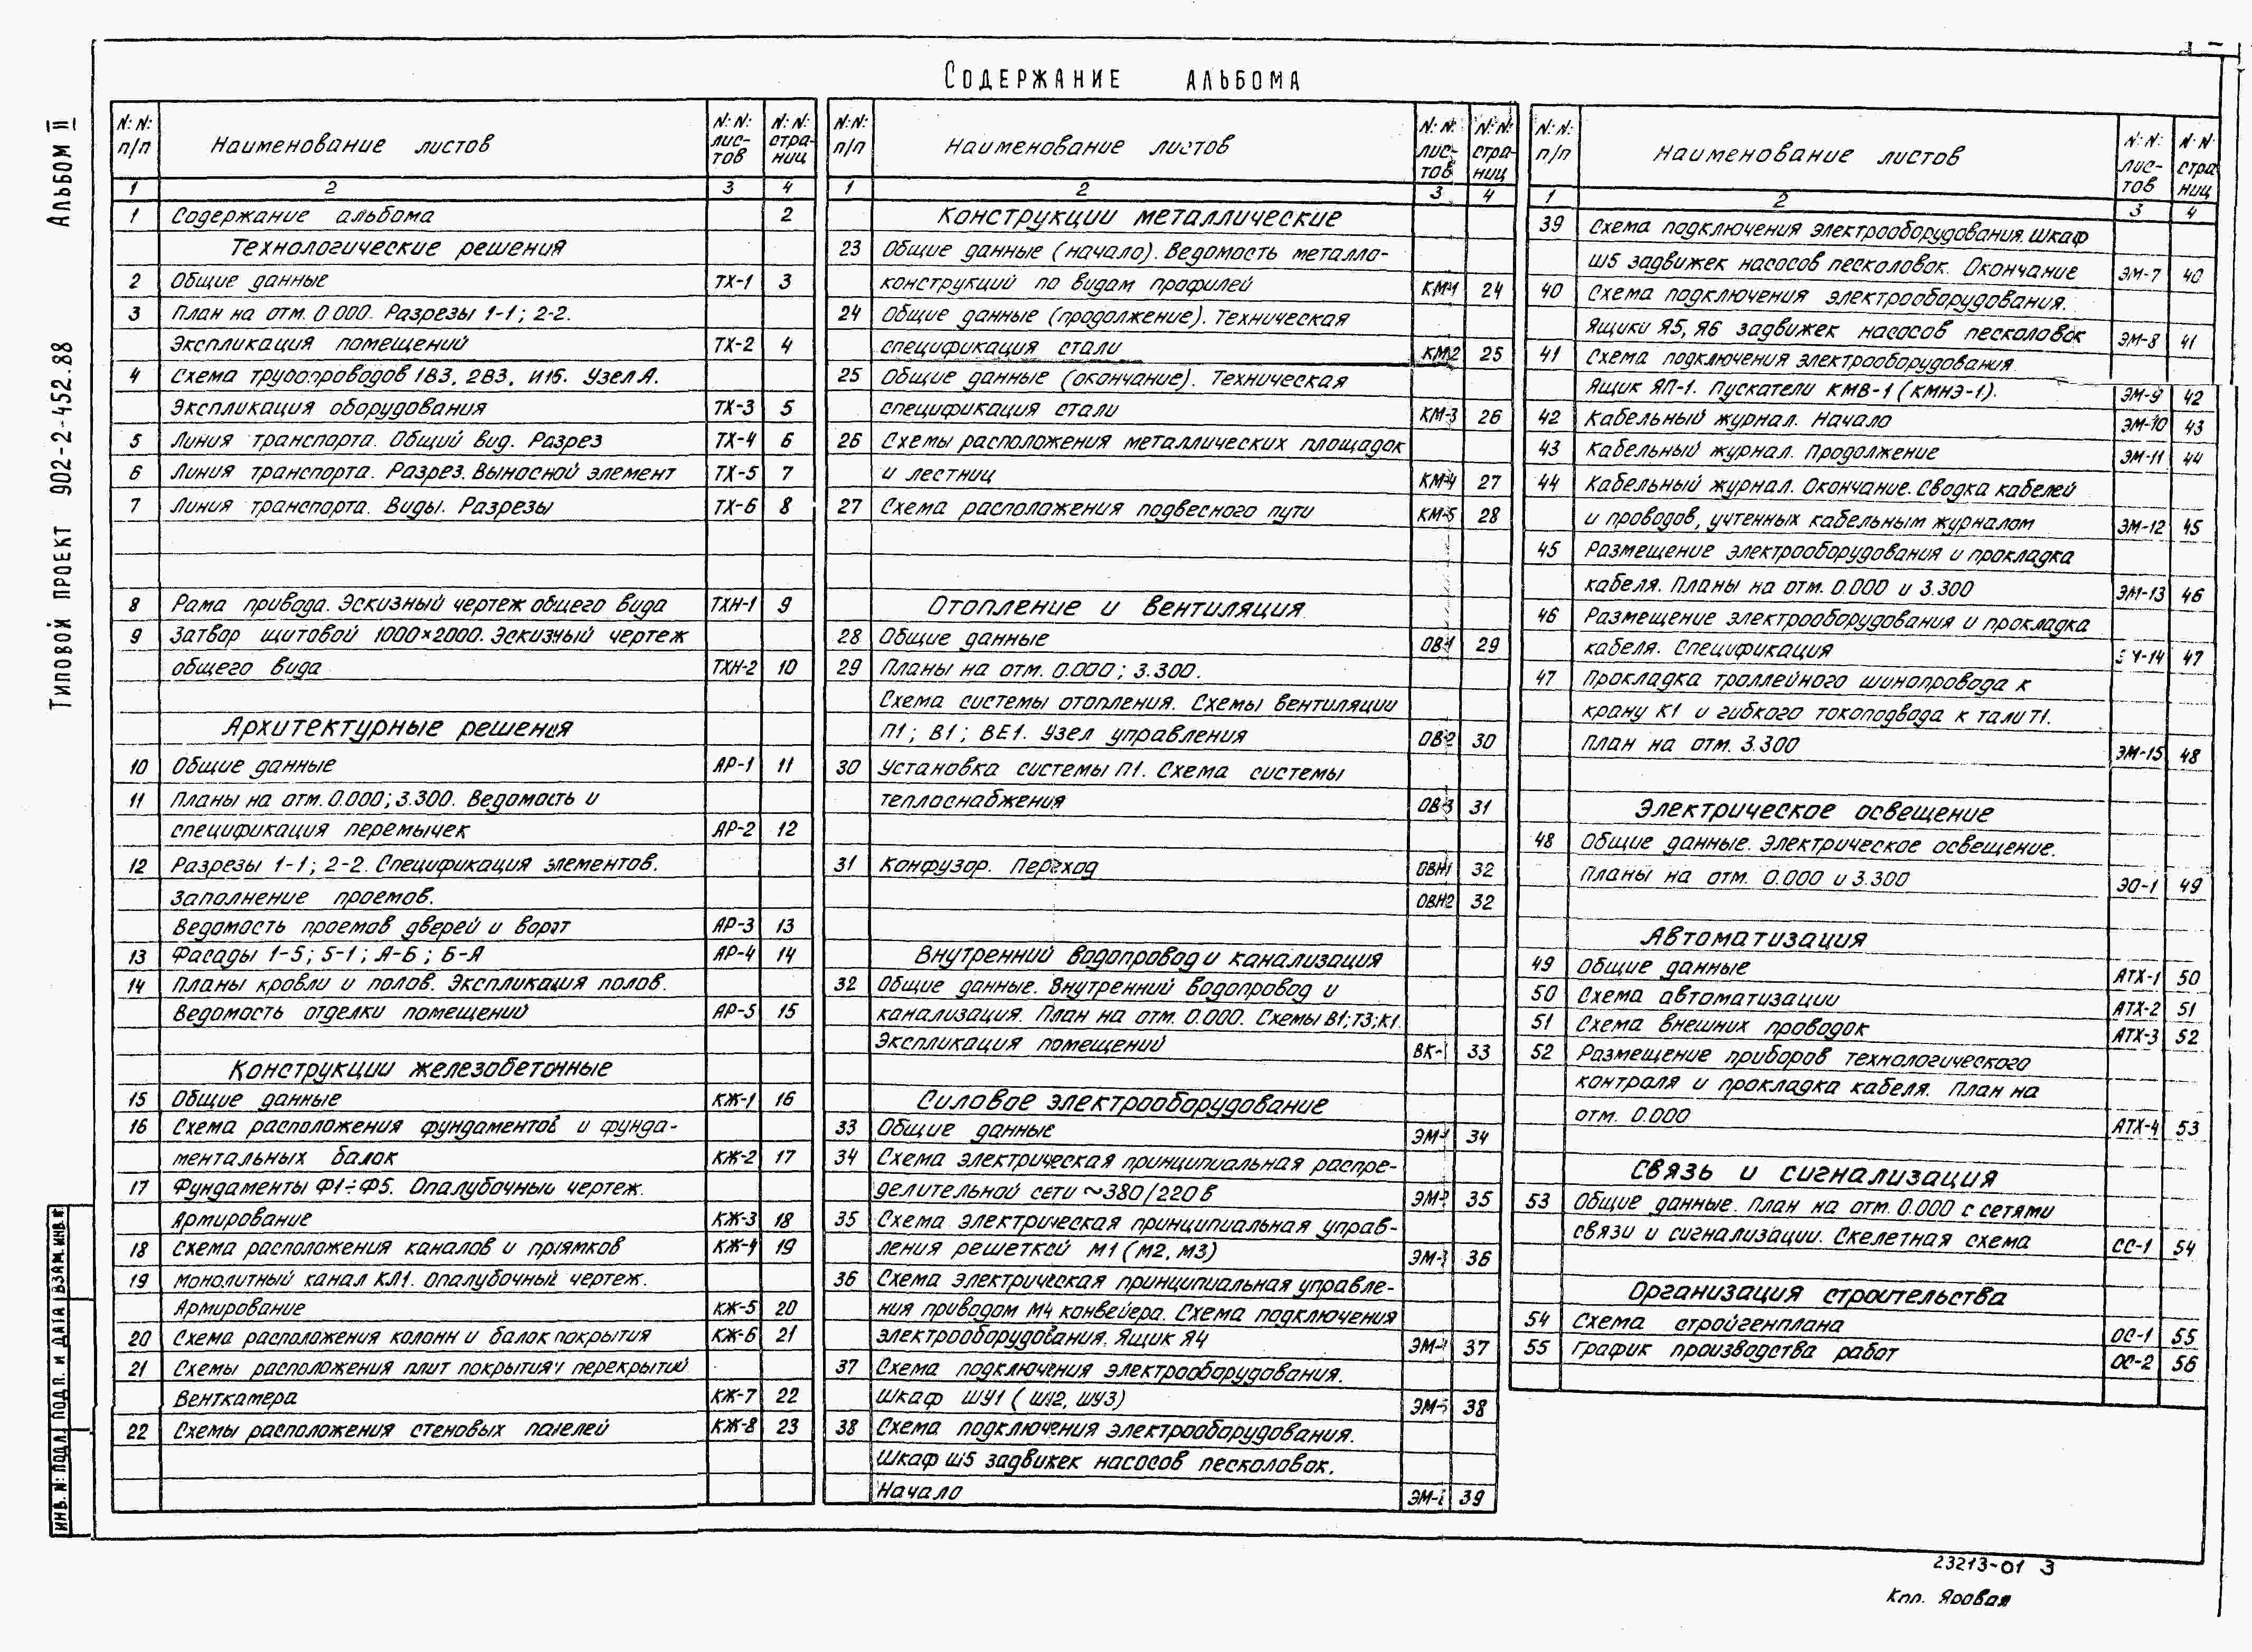 Содержание альбома
Альбом II
Типовой проект 902-2-452.88
N: N: п/п | Наименование листов | N: N: лис-тов | N: N: стра-ниц
1 | 2 | 3 | 4
1 Содержание альбома 2
Технологические решения
2 Общие данные ТХ-1 3
3 План на отм. 0.000. Разрезы 1-1; 2-2.
Экспликация помещений ТХ-2 4
4 Схема трубопроводов 1В3, 2В3, И16. Узел А.
Экспликация оборудования ТХ-3 5
5 Линия транспорта. Общий вид. Разрез ТХ-4 6
6 Линия транспорта. Разрез. Выносной элемент ТХ-5 7
7 Линия транспорта. Виды. Разрезы ТХ-6 8
8 Рама привода. Эскизный чертеж общего вида ТХН-1 9
9 Затвор щитовой 1000×2000. Эскизный чертеж
общего вида ТХН-2 10
Архитектурные решения
10 Общие данные АР-1 11
11 Планы на отм. 0.000; 3.300. Ведомость и
спецификация перемычек АР-2 12
12 Разрезы 1-1; 2-2. Спецификация элементов.
Заполнение проемов.
Ведомость проемов дверей и ворот АР-3 13
13 Фасады 1-5; 5-1; А-Б; Б-А АР-4 14
14 Планы кровли и полов. Экспликация полов.
Ведомость отделки помещений АР-5 15
Конструкции железобетонные
15 Общие данные КЖ-1 16
16 Схема расположения фундаментов и фунда-
ментальных балок КЖ-2 17
17 Фундаменты Ф1÷Ф5. Опалубочный чертеж.
Армирование КЖ-3 18
18 Схема расположения каналов и приямков КЖ-4 19
19 Монолитный канал КЛ1. Опалубочный чертеж.
Армирование КЖ-5 20
20 Схема расположения колонн и балок покрытия КЖ-6 21
21 Схемы расположения плит покрытия и перекрытий.
Венткамера КЖ-7 22
22 Схемы расположения стеновых панелей КЖ-8 23
N: N: п/п | Наименование листов | N: N: лис-тов | N: N: стра-ниц
1 | 2 | 3 | 4
Конструкции металлические
23 Общие данные (начало). Ведомость металло-
конструкций по видам профилей КМ-1 24
24 Общие данные (продолжение). Техническая
спецификация стали КМ-2 25
25 Общие данные (окончание). Техническая
спецификация стали КМ-3 26
26 Схемы расположения металлических площадок
и лестниц КМ-4 27
27 Схема расположения подвесного пути КМ-5 28
Отопление и вентиляция
28 Общие данные ОВ-1 29
29 Планы на отм. 0.000; 3.300.
Схема системы отопления. Схемы вентиляции
П1; В1; ВЕ1. Узел управления ОВ-2 30
30 Установка системы П1. Схема системы
теплоснабжения ОВ-3 31
31 Конфузор. Переход ОВН1 32
ОВН2 32
Внутренний водопровод и канализация
32 Общие данные. Внутренний водопровод и
канализация. План на отм. 0.000. Схемы В1; Т3; К1.
Экспликация помещений ВК-1 33
Силовое электрооборудование
33 Общие данные ЭМ-1 34
34 Схема электрическая принципиальная распре-
делительной сети ~380/220 в ЭМ-2 35
35 Схема электрическая принципиальная управ-
ления решеткой М1 (М2, М3) ЭМ-3 36
36 Схема электрическая принципиальная управле-
ния приводом М4 конвейера. Схема подключения
электрооборудования. Ящик Я4 ЭМ-4 37
37 Схема подключения электрооборудования.
Шкаф ШУ1 (ШУ2, ШУ3) ЭМ-5 38
38 Схема подключения электрооборудования.
Шкаф Ш5 задвижек насосов песколовок.
Начало ЭМ-6 39
N: N: п/п | Наименование листов | N: N: лис-тов | N: N: стра-ниц
1 | 2 | 3 | 4
39 Схема подключения электрооборудования. Шкаф
Ш5 задвижек насосов песколовок. Окончание ЭМ-7 40
40 Схема подключения электрооборудования.
Ящики Я5, Я6 задвижек насосов песколовок ЭМ-8 41
41 Схема подключения электрооборудования.
Ящик ЯП-1. Пускатели КМВ-1 (КМНЭ-1). ЭМ-9 42
42 Кабельный журнал. Начало ЭМ-10 43
43 Кабельный журнал. Продолжение ЭМ-11 44
44 Кабельный журнал. Окончание. Сводка кабелей
и проводов, учтенных кабельным журналом ЭМ-12 45
45 Размещение электрооборудования и прокладка
кабеля. Планы на отм. 0.000 и 3.300 ЭМ-13 46
46 Размещение электрооборудования и прокладка
кабеля. Спецификация ЭМ-14 47
47 Прокладка троллейного шинопровода к
крану К1 и гибкого токоподвода к тали Т1.
План на отм. 3.300 ЭМ-15 48
Электрическое освещение
48 Общие данные. Электрическое освещение.
Планы на отм. 0.000 и 3.300 ЭО-1 49
Автоматизация
49 Общие данные АТХ-1 50
50 Схема автоматизации АТХ-2 51
51 Схема внешних проводок АТХ-3 52
52 Размещение приборов технологического
контроля и прокладка кабеля. План на
отм. 0.000 АТХ-4 53
Связь и сигнализация
53 Общие данные. План на отм. 0.000 с сетями
связи и сигнализации. Скелетная схема СС-1 54
Организация строительства
54 Схема стройгенплана ОС-1 55
55 График производства работ ОС-2 56
Инв. N: подл. Подп. и дата Взам. инв. N:
23213-01 3
Коп. Яровая